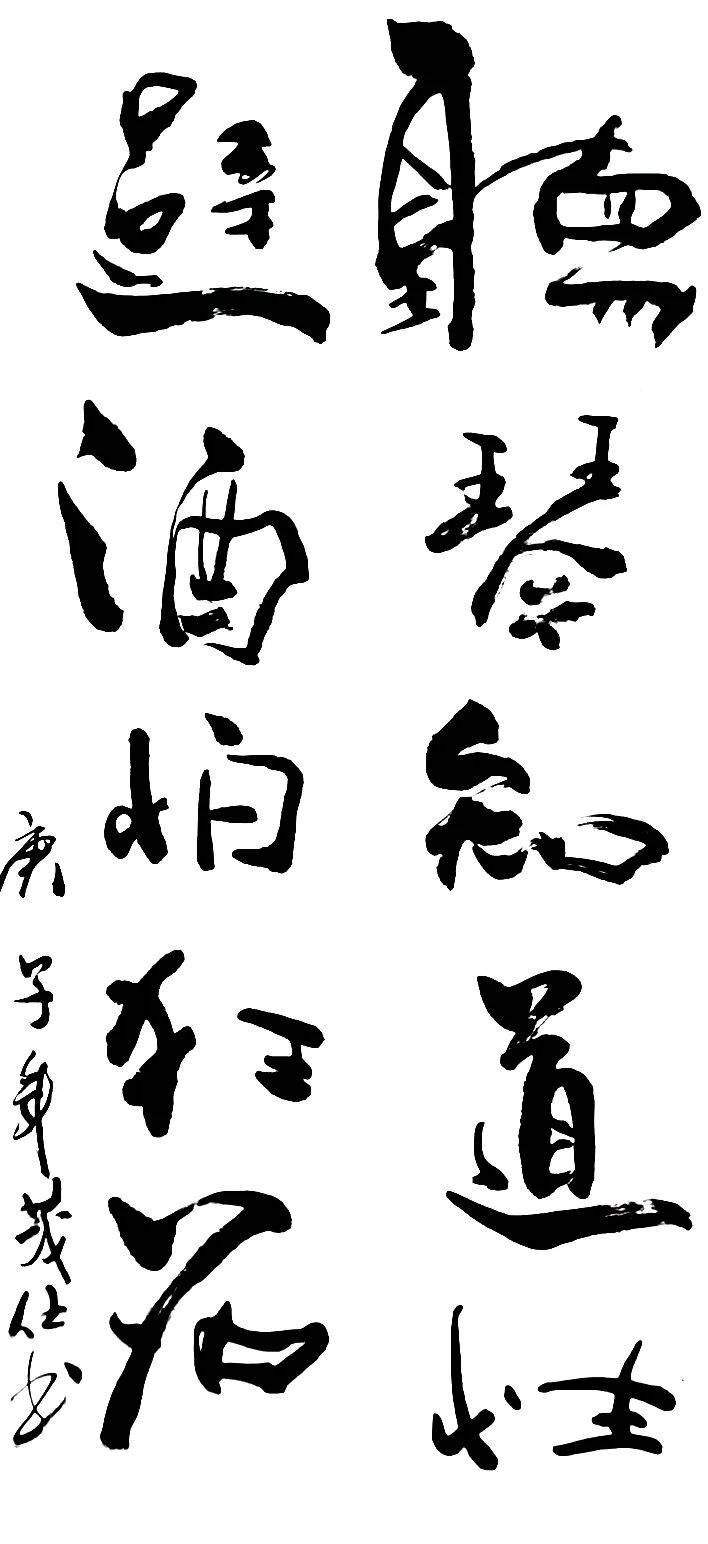 聽琴知道性
避酒怕狂名
庚子年茂仕书